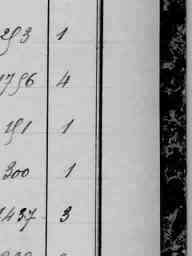 293 1
1796 4
191 1
300 1
1437 3